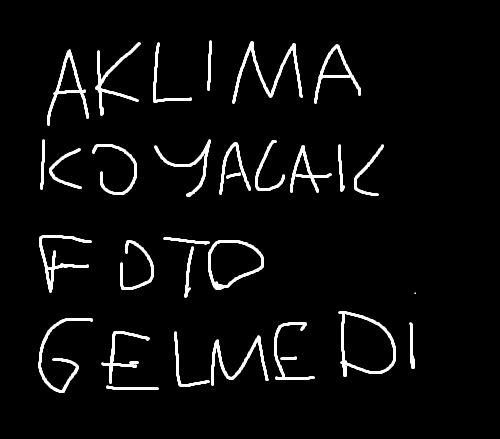 AKLIMA
KOYACAK
FOTO
GELMEDI